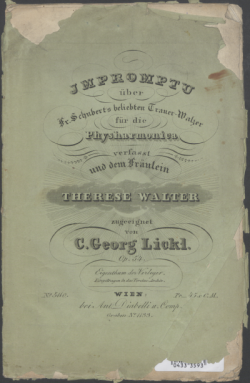 IMPROMPTU
über
Fr. Schubert's beliebten Trauer-Walzer
für die
Physharmonica
verfasst
und dem Fräulein
THERESE WALTER
zugeeignet
von
C. Georg Lickl.
Op. 54.
Eigenthum der Verleger.
WIEN,
bei Ant. Diabelli u. Comp.
Graben No. 1133.